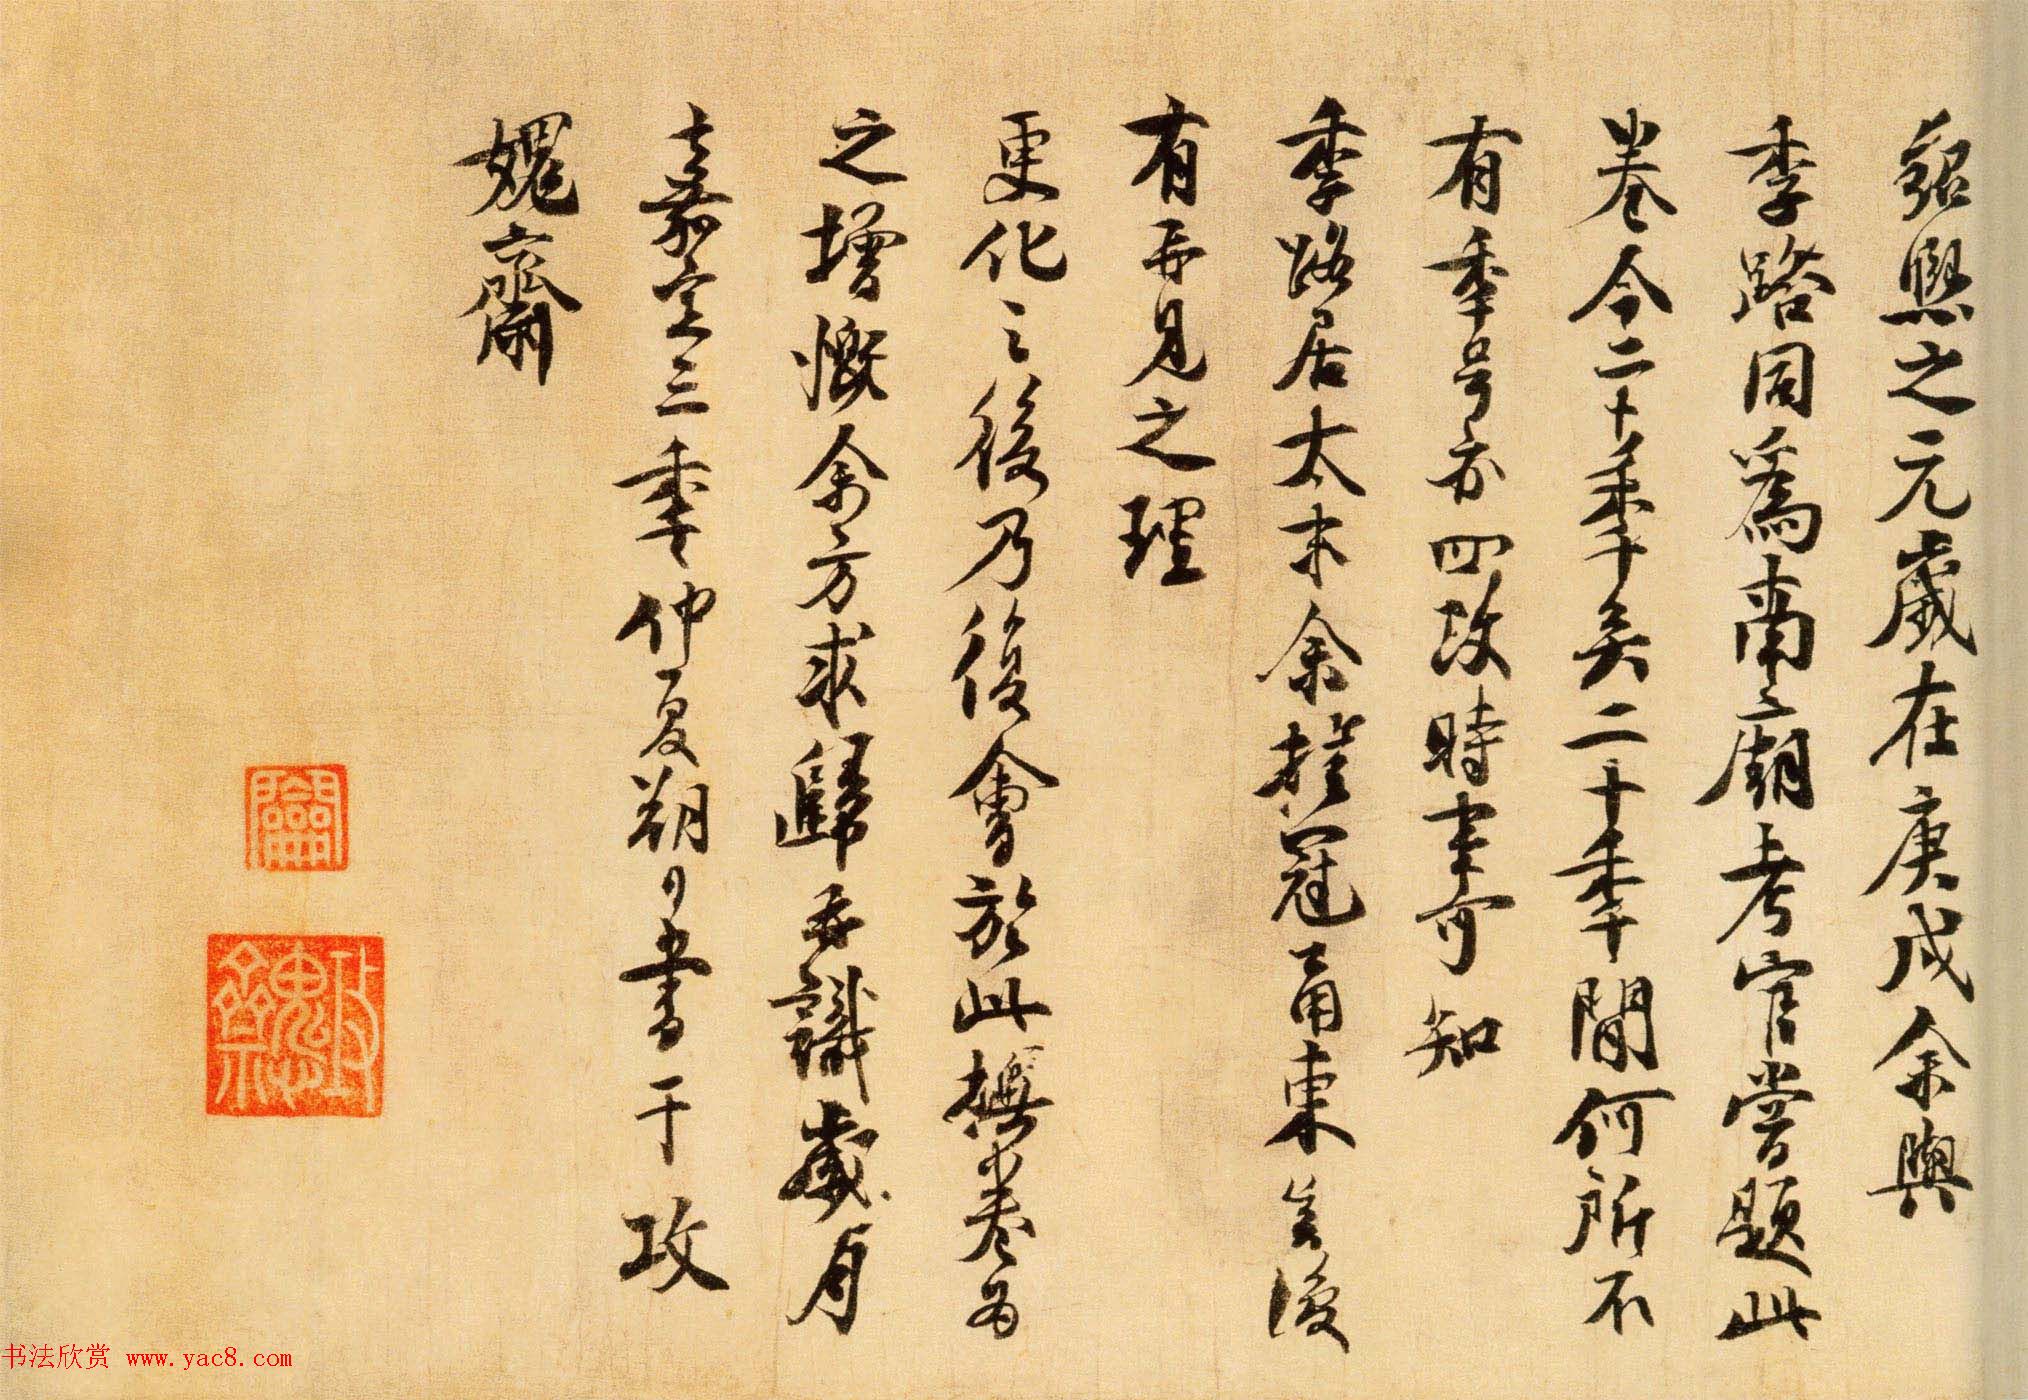 紹熙之元歲在庚戌余與
季路同為南廟考官嘗題此
卷今二十年矣二十年間何所不
有年号亦四改時事可知
季路居太末余挂冠甬東無復
有再見之理
更化之後乃復會於此撫卷為
之增慨余方求歸再識歲月
嘉定三年仲夏朔日書于攻
媿齋
攻媿齋
书法欣赏 www.yac8.com